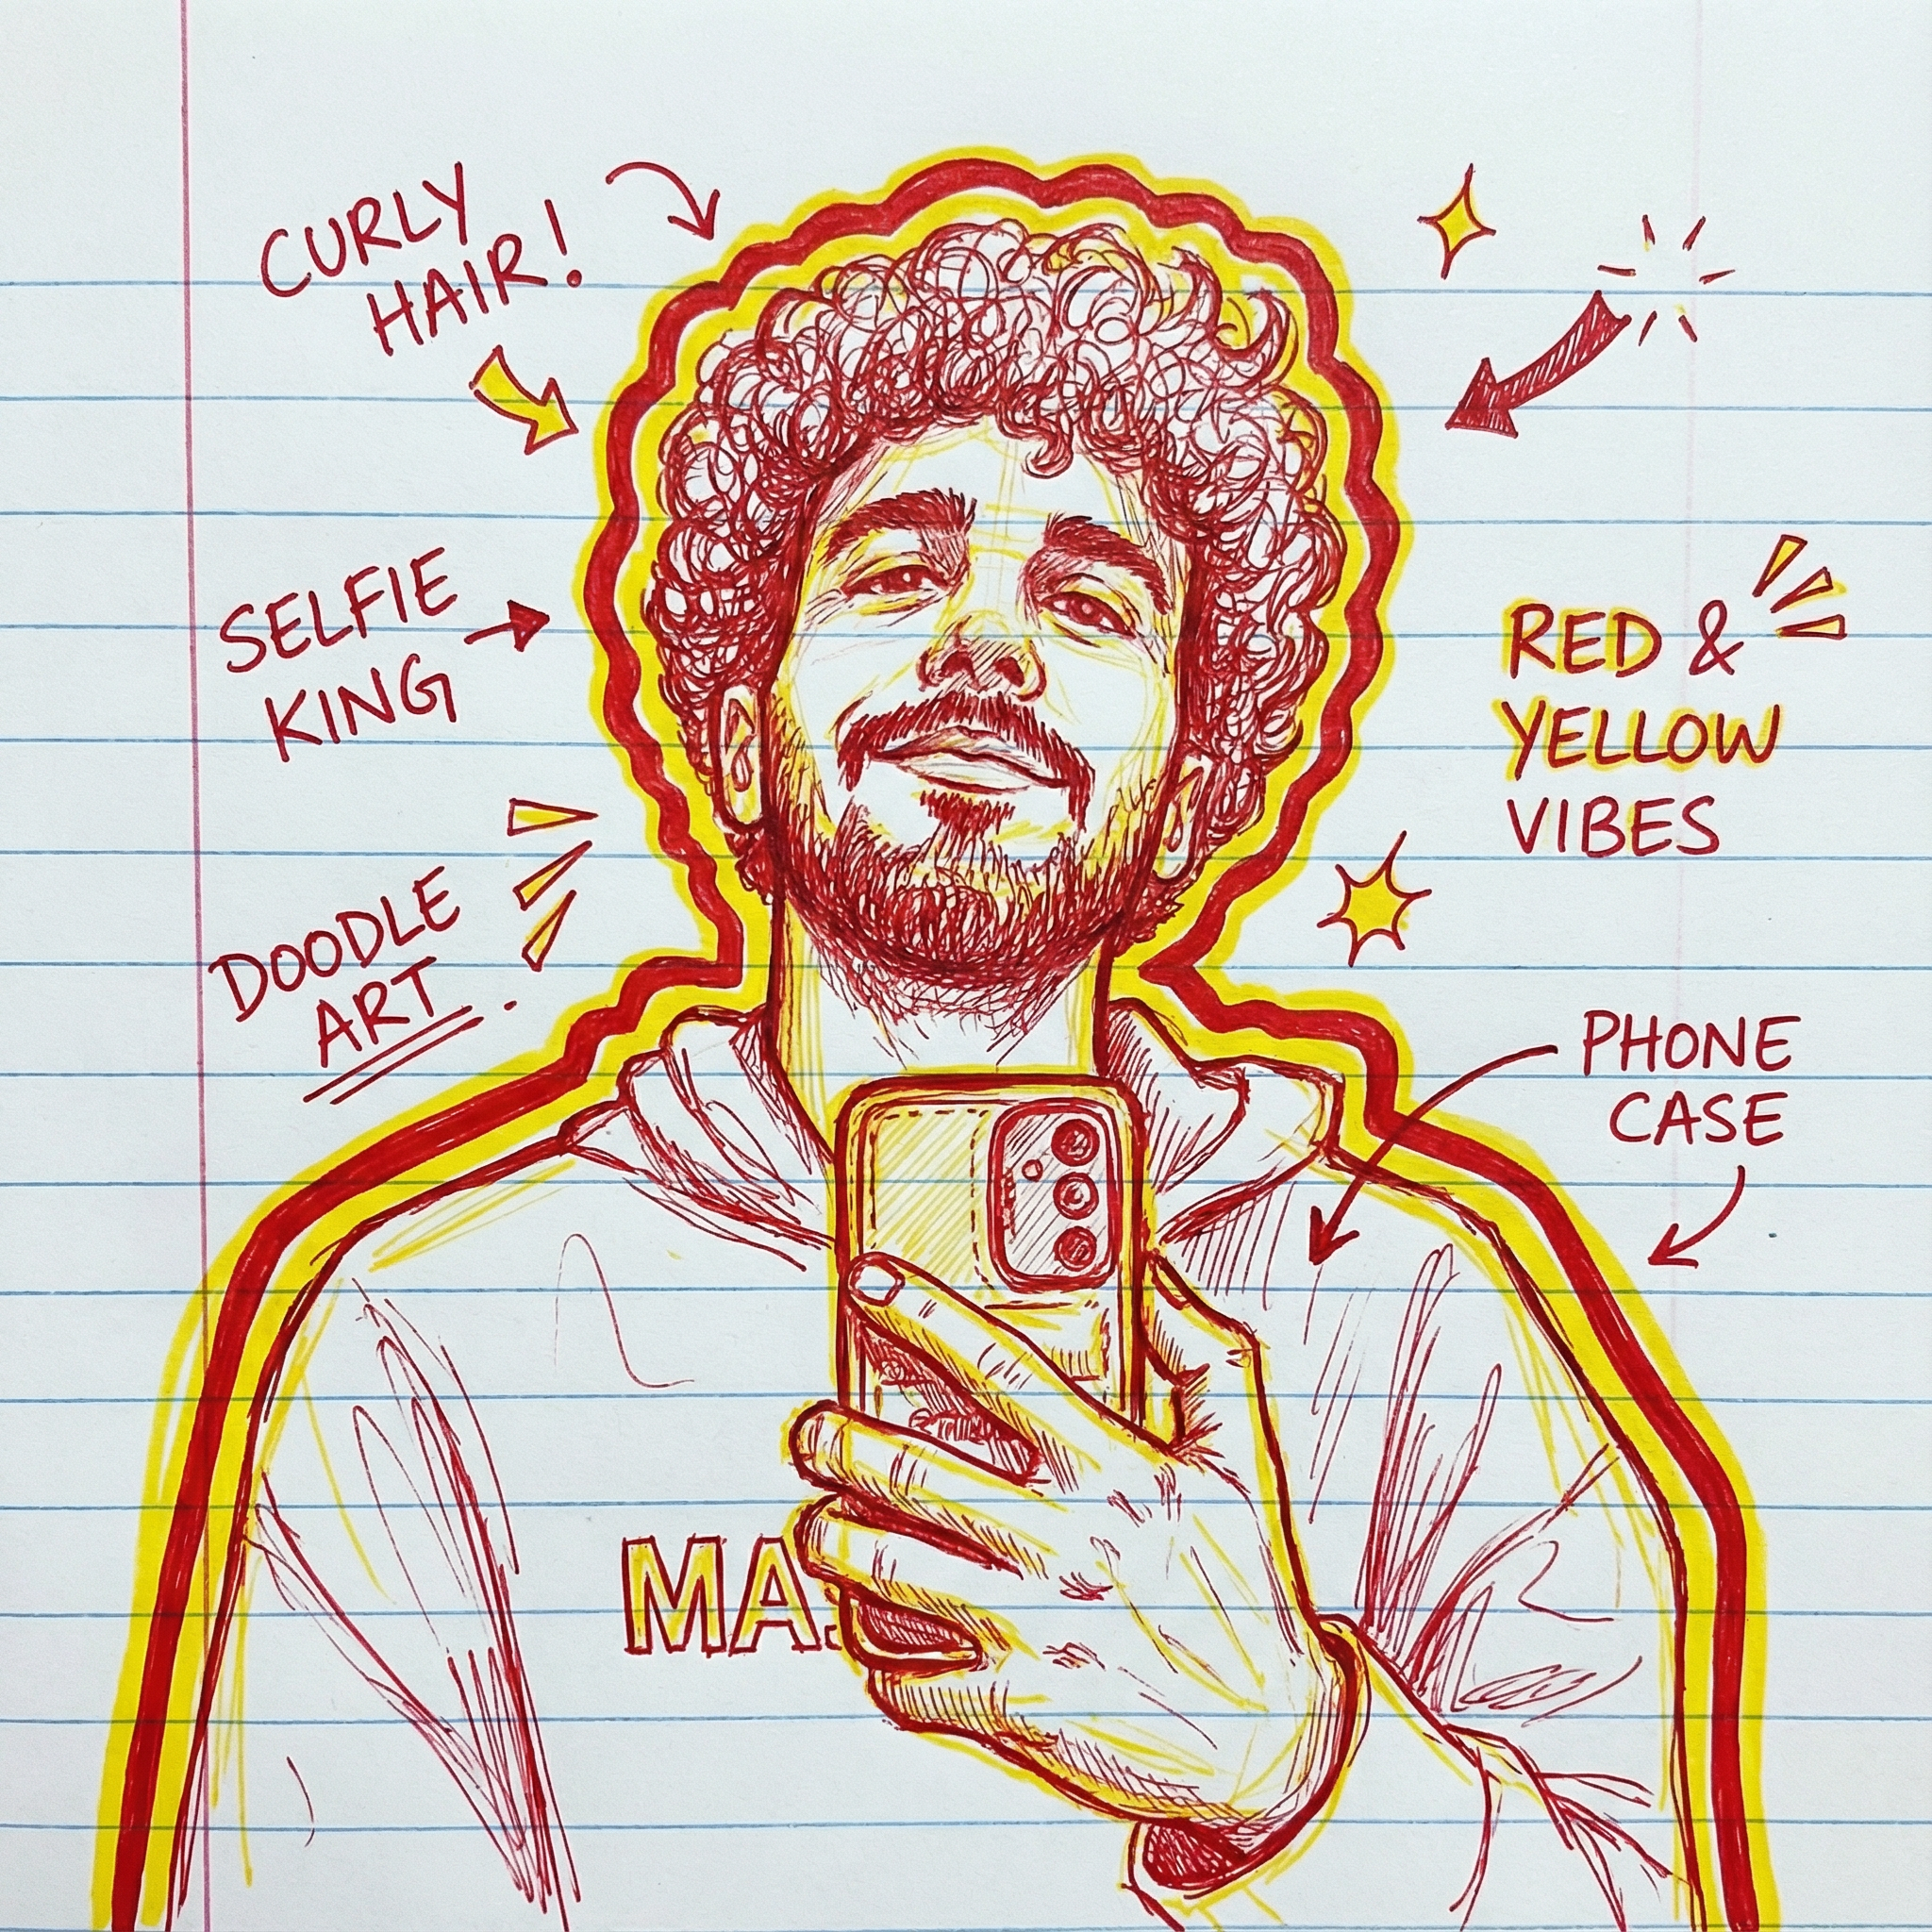 CURLY
HAIR!
SELFIE
KING
DOODLE
ART.
RED &
YELLOW
VIBES
PHONE
CASE
MA